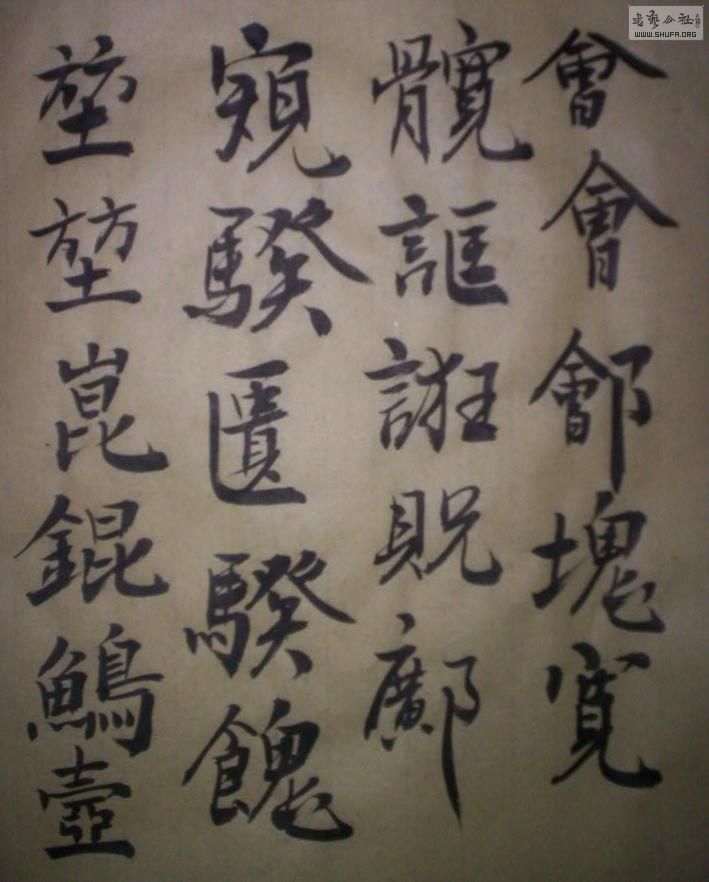 會會鄶塊寬
髖誆誑貺鄺
窺騤匱騤餽
堃堃崑錕壼
書藝公社
WWW.SHUFA.ORG